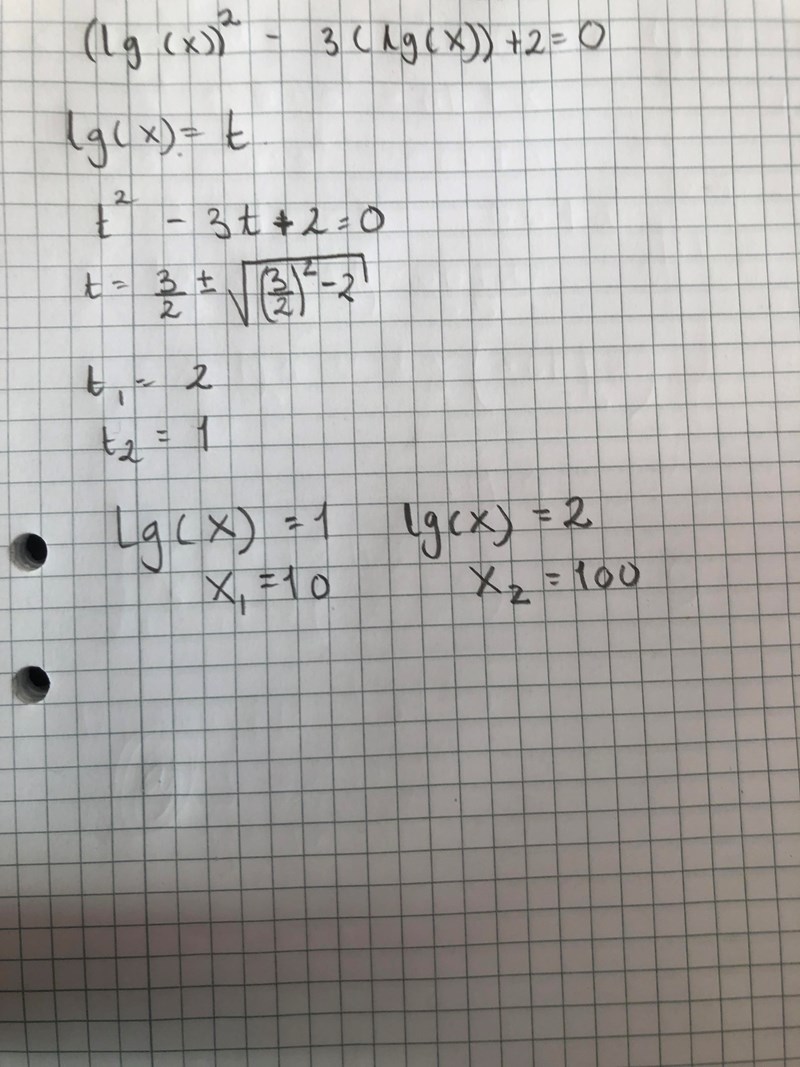 (lg (x))² - 3(lg(x)) +2=0
lg(x)= t
t² - 3t +2=0
t= 3/2 ± √((3/2)²-2)
t₁= 2
t₂ = 1
lg(x) =1 lg(x) =2
x₁=10 x₂=100